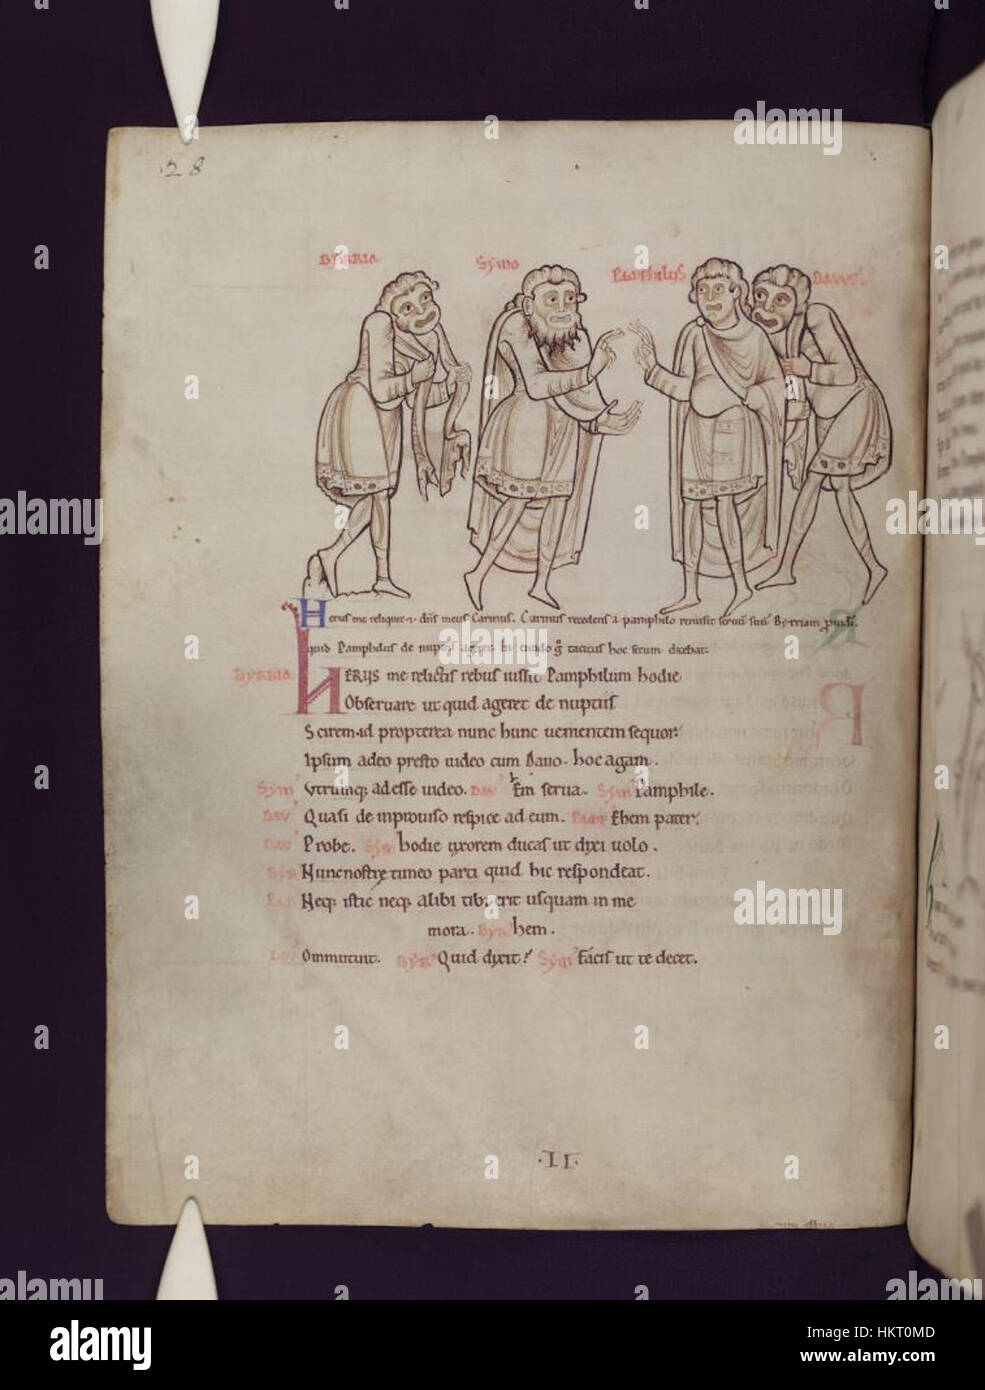 .28
BYRRIA SYMO PAMPHILUS DAVUS.
Herus me reliquit .i. dñs meus Carinus. Carinus recedens a pamphilo remisit seruũ suũ Byrriam
quid Pamphilus de nuptiis ageret tacitus hoc secum dicebat:
BYRRIA HERUS me relictis rebus iussit Pamphilum hodie
Obseruare ut quid ageret de nuptiis
Scirem. id propterea nunc hunc uementem sequor:
Ipsum adeo presto uideo cum Dauo. hoc agam.
Sym Vtrumq; adesse uideo. Dau Em serua. Sym Pamphile.
Dau Quasi de inprouiso respice ad eum. Pam Ehem pater.
Dau Probe. Sym hodie uxorem ducas ut dixi uolo.
Byr Nunc nostre timeo parti quid hic respondeat.
Pam Neq; istic neq; alibi tibi erit usquam in me
mora. Byr hem.
Dau Ommutuit. Byr Quid dixit? Sym Facis ut te decet.
.II.
alamy
HKT0MD
www.alamy.com